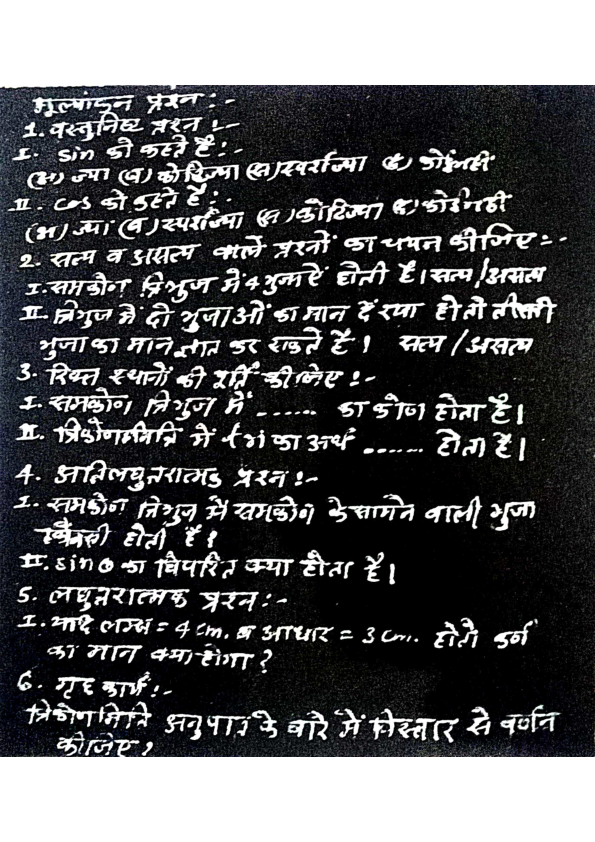 मूल्यांकन प्रश्न :-
1. वस्तुनिष्ठ प्रश्न :-
I. sin को कहते है :-
(अ) ज्या (ब) कोटिज्या (स) स्पर्शज्या (द) कोई नहीं
II. cos को कहते है :-
(अ) ज्या (ब) स्पर्शज्या (स) कोटिज्या (द) कोई नही
2. सत्य व असत्य वाले प्रश्नों का चयन कीजिए :-
I. समकोण त्रिभुज में 4 भुजाऐं होती है। सत्य / असत्य
II. त्रिभुज में दो भुजाओं का मान दे रखा हो तो तीसरी
भुजा का मान ज्ञात कर सकते है। सत्य / असत्य
3. रिक्त स्थानों की पूर्ति कीजिए :-
I. समकोण त्रिभुज में ...... का कोण होता है।
II. त्रिकोणमिति में त्रि का अर्थ ...... होता है।
4. अतिलघुतरात्मक प्रश्न :-
I. समकोण त्रिभुज में समकोण के सामने वाली भुजा
कौनसी होती है?
II. sin θ का विपरित क्या होता है।
5. लघुतरात्मक प्रश्न :-
I. यदि लम्ब = 4 cm. व आधार = 3 cm. हो तो कर्ण
का मान क्या होगा?
6. गृह कार्य :-
त्रिकोणमिति अनुपात के बारे में विस्तार से वर्णन
कीजिए?